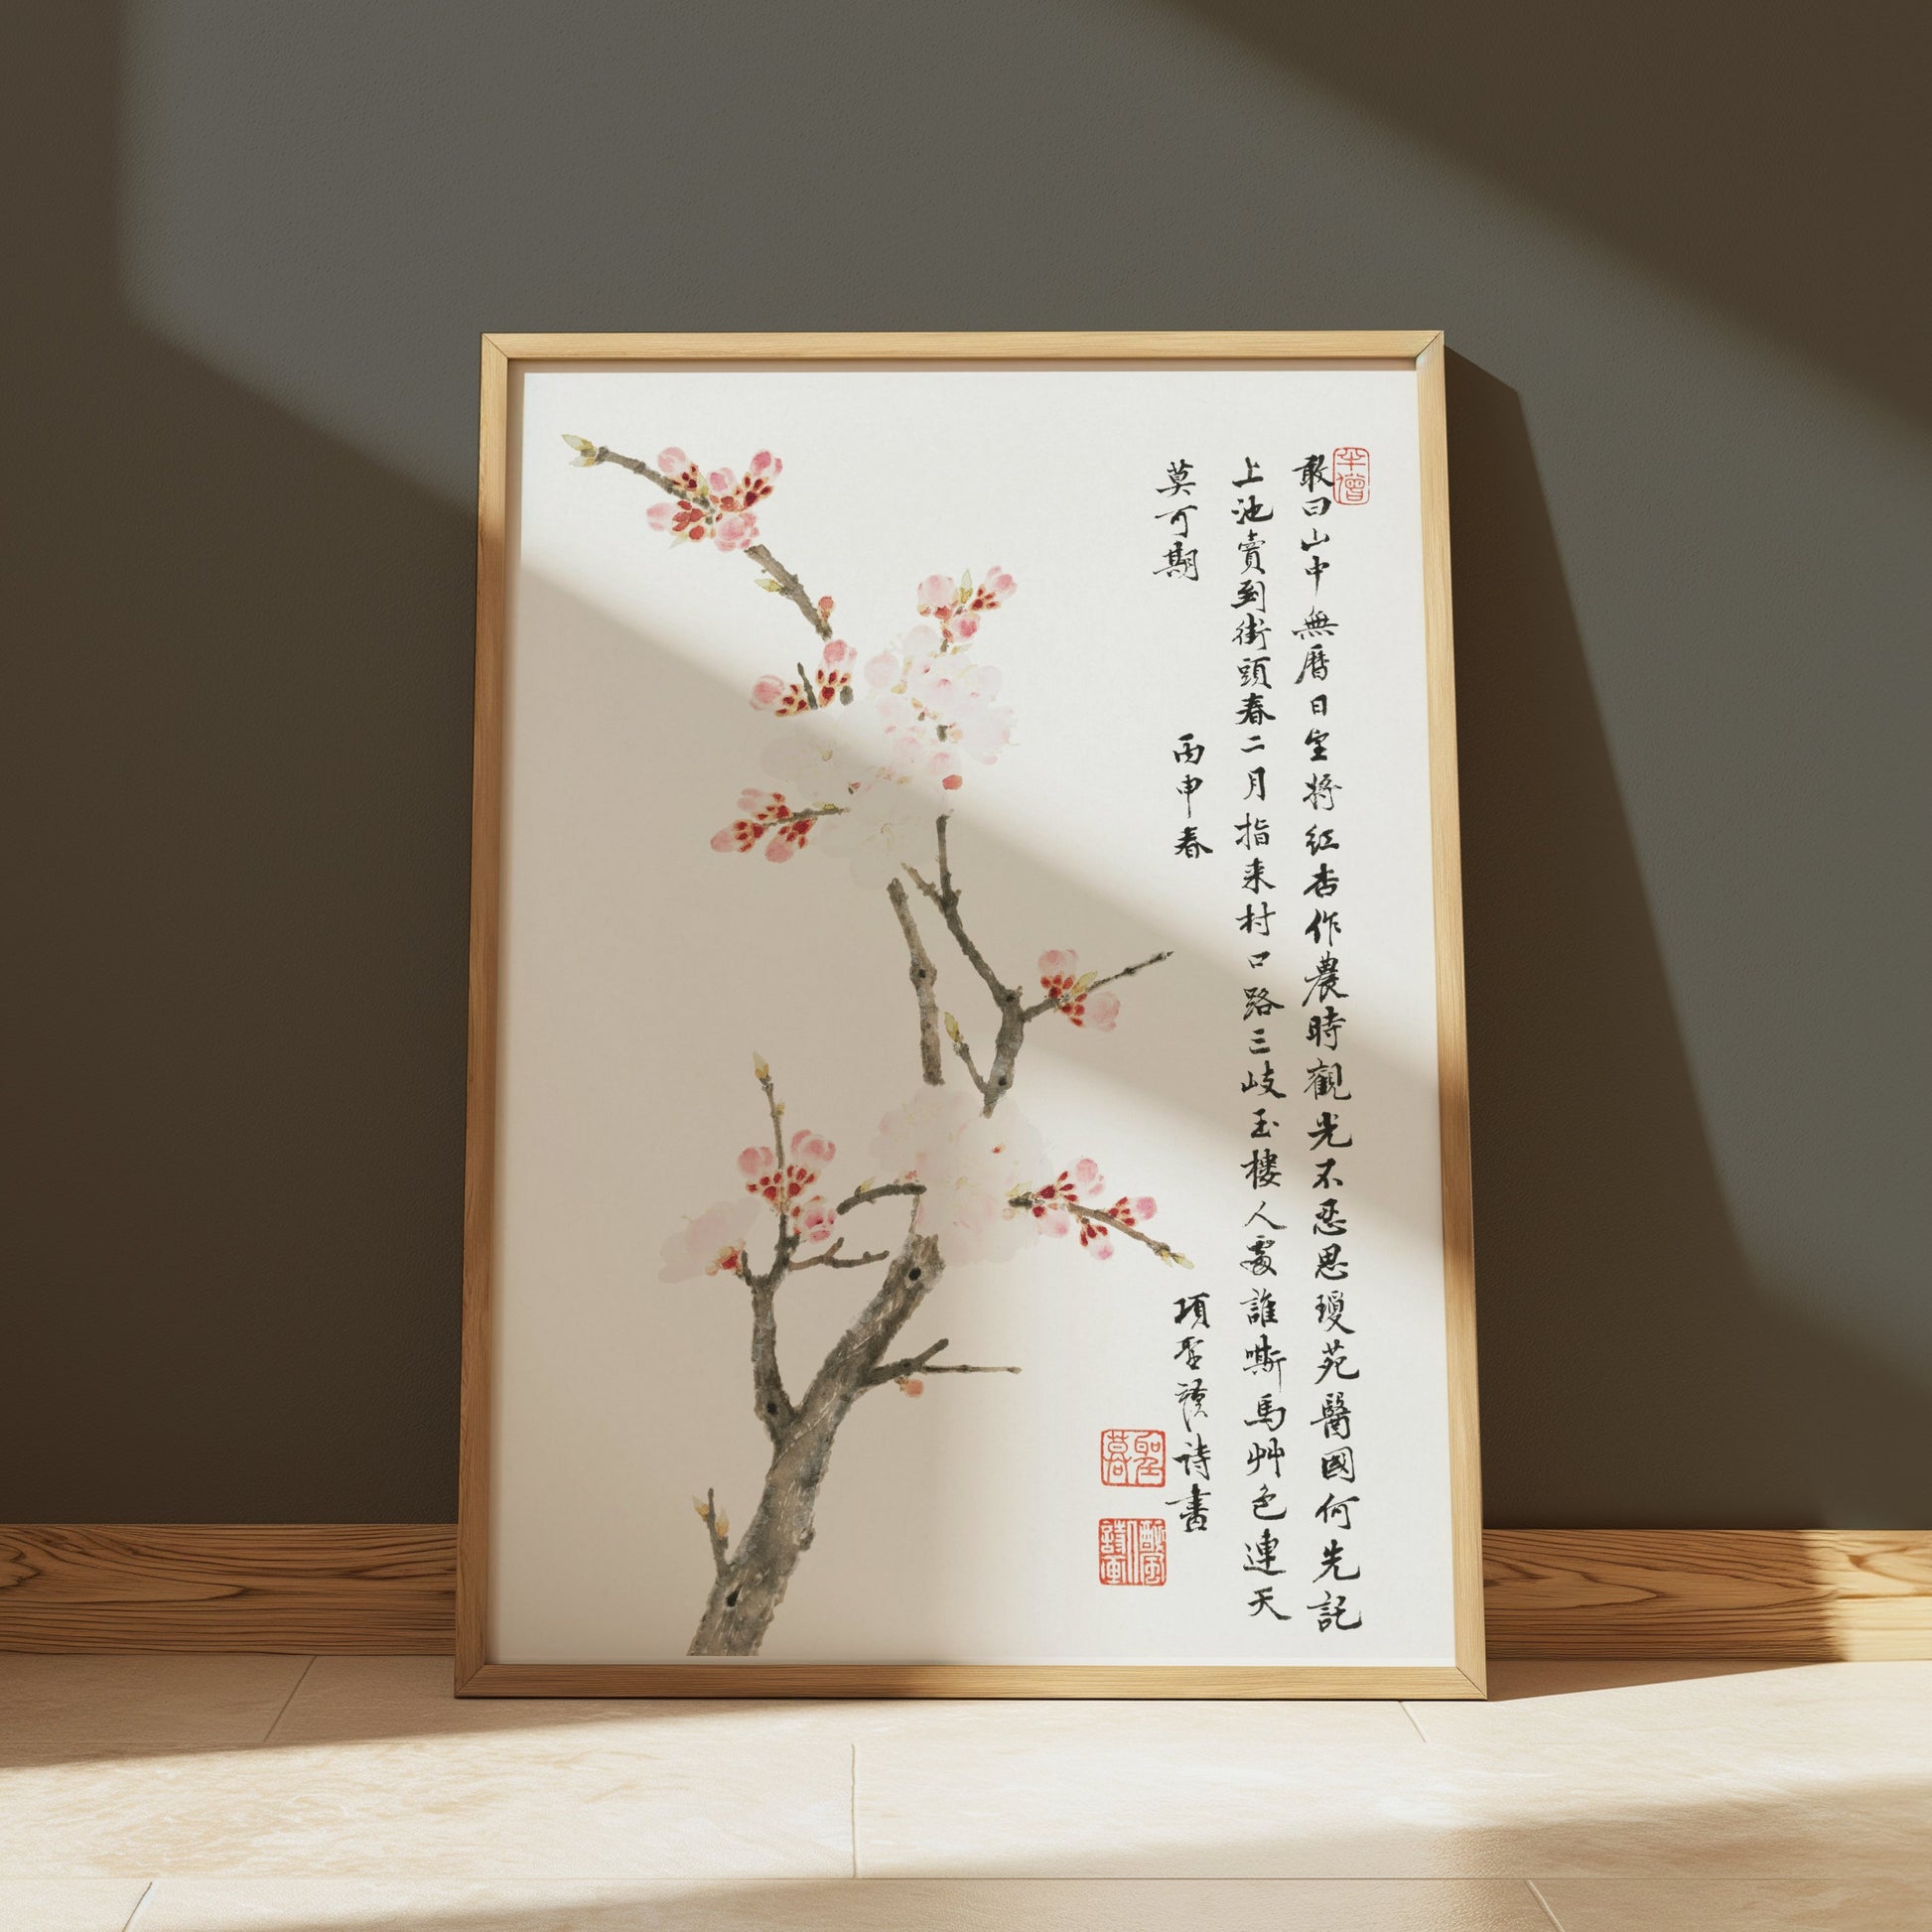 敢曰山中無曆日將紅杏作農時觀光不忍思瓊苑醫國何先託
上池賣到街頭春二月指来村口路三岐玉樓人處誰嘶馬艸色連天
莫可期 丙申春 項聖謨詩書